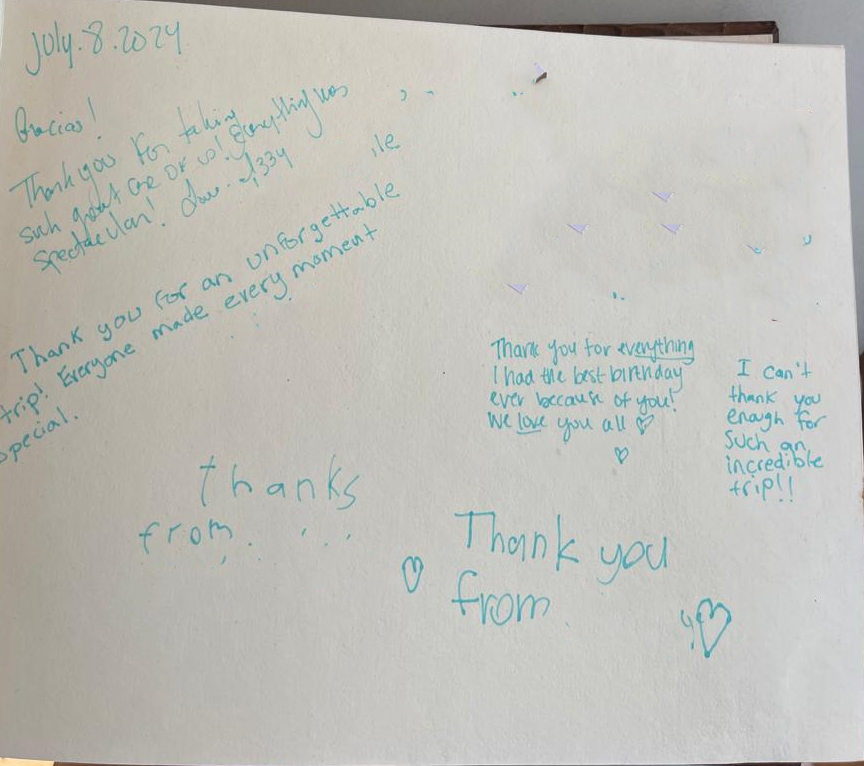 July.8.2024
Gracias!
Thank you for taking
such great care of us! Everything was
spectacular!
Thank you for an unforgettable
trip! Everyone made every moment
special.
Thank you for everything
I had the best birthday
ever because of you!
We love you all
I can't
thank you
enough for
such an
incredible
trip!!
thanks
from
Thank you
from